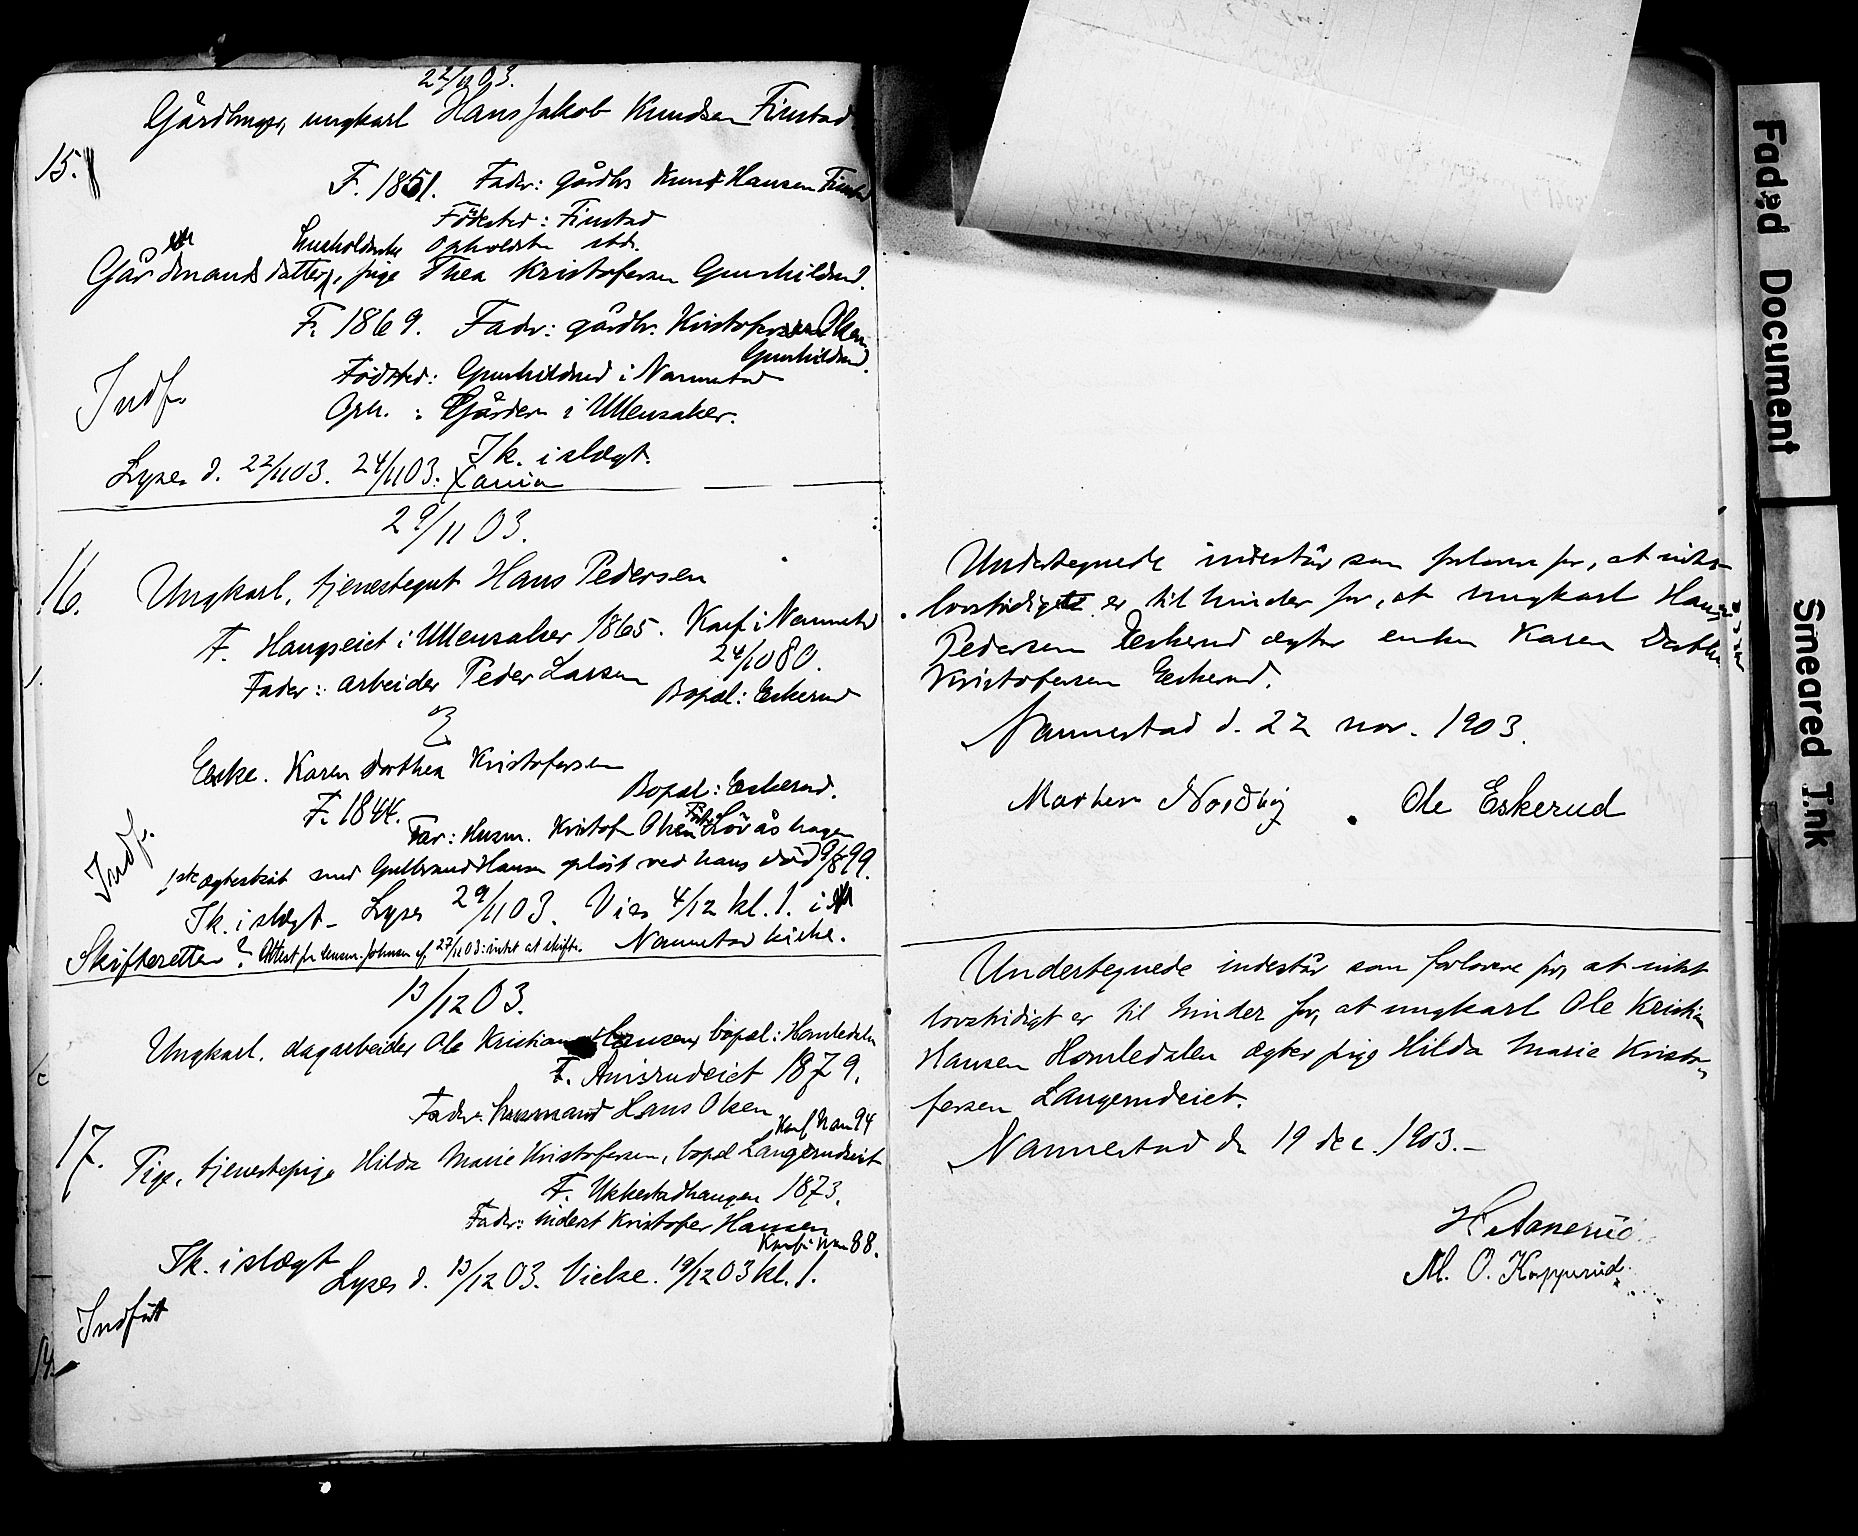 22/11 03.
Gårdbruger, ungkarl Hans Jakob Knudsen Finstad
15.
F. 1851. Fader: gårdbr Knud Hansen Finstad
Födested: Finstad
Husholderske Opholdst std.
Gårdmandsdatter, pige Thea Kristofersen Gunhildrud.
F. 1869. Fader: gårdbr. Kristofer Olsen
Gunhildrud.
Födsted: Gunhildrud i Nannestad
Oph. : Gården i Ullensaker.
Indf.
Ik. i slægt.
Lyses d. 22/11 03. 24/11 03. Xania
29/11 03.
16. Ungkarl, tjenestegut Hans Pedersen
F. Haugseiet i Ullensaker 1865. Konf i Nannestad
24/10 80.
Fader: arbeider Peder Larsen
Bopæl: Eskerud
Enke. Karen Dorthea Kristofersen
Bopæl: Eskerud.
F. 1844.
Far: Husm. Kristofer Olsen Lövåshagen
Indf.
1ste ægteskab med Gulbrand Hansen oplöst ved hans död 9/8 99.
Ik. i slægt - Lyses 29/11 03. Vies 4/12 kl. 1. i
Nannestad kirke.
Skifteretten? Attest fra lensm. Johnsen af 27/11 03: intet at skifte.
13/12 03.
Ungkarl. dagarbeider Ole Kristian Hansen, bopæl: Homledalen
F. Amsrudeiet 1879.
Fader: husmand Hans Olsen
Konf Nan 94
17. Pige, tjenestepige Hilda Marie Kristofersen, bopæl Langerudeiet
F. Ukkestadhaugen 1873.
Fader: inderst Kristofer Hansen
Konf i Nan 88.
Ik. i slægt
Lyses d. 13/12 03. Vielse. 19/12 03 kl. 1.
Indfört
Undertegnede indestår som forlovere for, at intet
lovstridigt er til hinder for, at ungkarl Hans
Pedersen Eskerud ægter enken Karen Dorthea
Kristofersen Eskerud.
Nannestad d. 22 nov. 1903.
Marten Nordby . Ole Eskerud
Undertegnede indestår som forlovere for, at intet
lovstridigt er til hinder for, at ungkarl Ole Kristian
Hansen Homledalen ægter pige Hilda Marie Kristo-
fersen Langerudeiet.
Nannestad den 19 dec. 1903. -
H. Aanerud.
M. O. Kopperud.
Faded Document
Smeared Ink